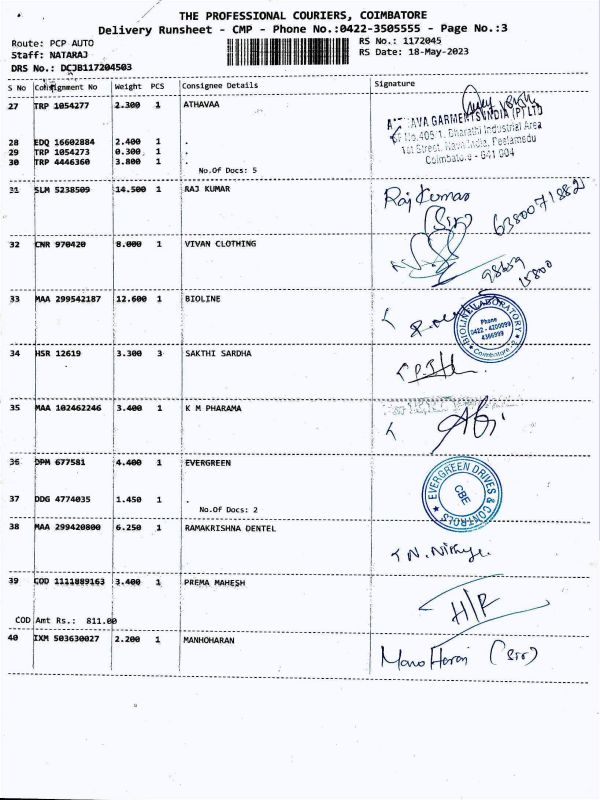 THE PROFESSIONAL COURIERS, COIMBATORE
Delivery Runsheet - CMP - Phone No.:0422-3505555 - Page No.:3
Route: PCP AUTO RS No.: 1172045
Staff: NATARAJ RS Date: 18-May-2023
DRS No.: DCJB117204503
S No Consignment No Weight PCS Consignee Details Signature
27 TRP 1054277 2.300 1 ATHAVAA
GARMENTS INDIA (P) LTD
No.405/1, Bharathi Industrial Area
1st Street, Nava India, Peelamedu
Coimbatore - 641 004
28 EDQ 16602884 2.400 1 .
29 TRP 1054273 0.300 1 .
30 TRP 4446360 3.800 1 .
No.Of Docs: 5
31 SLM 5238509 14.500 1 RAJ KUMAR
Raj Kumar
(Sir) 6380071882
32 CNR 970420 8.000 1 VIVAN CLOTHING
98659
15800
33 MAA 299542187 12.600 1 BIOLINE
BIOLINE LABORATORY
Phone
0422 - 4200099
4366999
Coimbatore - 2
34 HSR 12619 3.300 3 SAKTHI SARDHA
35 MAA 102462246 3.400 1 K M PHARAMA
36 DPM 677581 4.400 1 EVERGREEN
EVERGREEN DRIVES & CONTROLS
CBE
37 DDG 4774035 1.450 1 .
No.Of Docs: 2
38 MAA 299420800 6.250 1 RAMAKRISHNA DENTEL
39 COD 1111889163 3.400 1 PREMA MAHESH
H/R
COD Amt Rs.: 811.00
40 IXM 503630027 2.200 1 MANHOHARAN
Mano Haran (Sir)